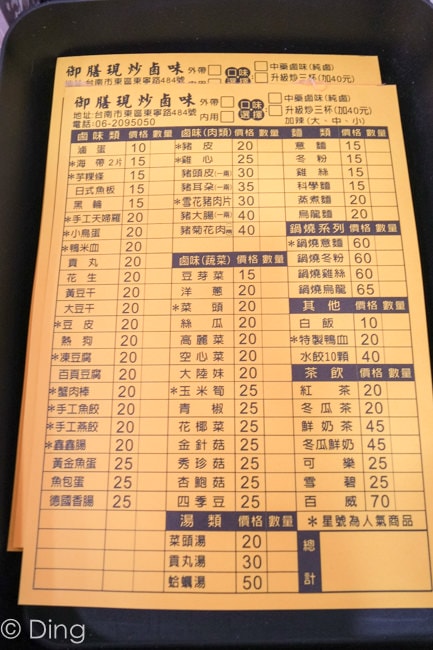 御膳現炒卤味 外帶 口味選擇 中藥卤味(純卤)
地址:台南市東區東寧路484號 升級炒三杯(加40元)
御膳現炒卤味 外帶 口味選擇 中藥卤味(純卤)
地址:台南市東區東寧路484號 內用 升級炒三杯(加40元)
電話:06-2095050 加辣(大、中、小)
卤味類 價格 數量
滷蛋 10
*海帶2片 15
*芋粿條 15
日式魚板 15
黑輪 15
*手工天婦羅 20
*小鳥蛋 20
*鴨米血 20
貢丸 20
花生 20
黃豆干 20
大豆干 20
*豆皮 20
熱狗 20
*凍豆腐 20
百頁豆腐 20
*蟹肉棒 20
*手工魚餃 20
*手工燕餃 20
*鑫鑫腸 20
黃金魚蛋 25
魚包蛋 25
德國香腸 25
卤味(肉類) 價格 數量
*豬皮 20
*雞心 25
豬頭皮(一兩) 35
豬耳朵(一兩) 35
*雪花豬肉片 30
豬大腸(一兩) 40
豬菊花肉 40
卤味(蔬菜) 價格 數量
豆芽菜 15
洋蔥 20
*菜頭 20
絲瓜 20
高麗菜 20
空心菜 20
大陸妹 20
*玉米筍 25
青椒 25
花椰菜 25
金針菇 25
秀珍菇 25
杏鮑菇 25
四季豆 25
湯類 價格 數量
菜頭湯 20
貢丸湯 30
蛤蠣湯 50
麵類 價格 數量
意麵 15
冬粉 15
雞絲 15
科學麵 15
蒸煮麵 20
烏龍麵 20
鍋燒系列 價格 數量
*鍋燒意麵 60
鍋燒冬粉 60
鍋燒雞絲 60
鍋燒烏龍 65
其他 價格 數量
白飯 10
*特製鴨血 20
水餃10顆 40
茶飲 價格 數量
紅茶 20
冬瓜茶 20
鮮奶茶 45
冬瓜鮮奶 45
可樂 25
雪碧 25
百威 70
*星號為人氣商品
總計
© Ding